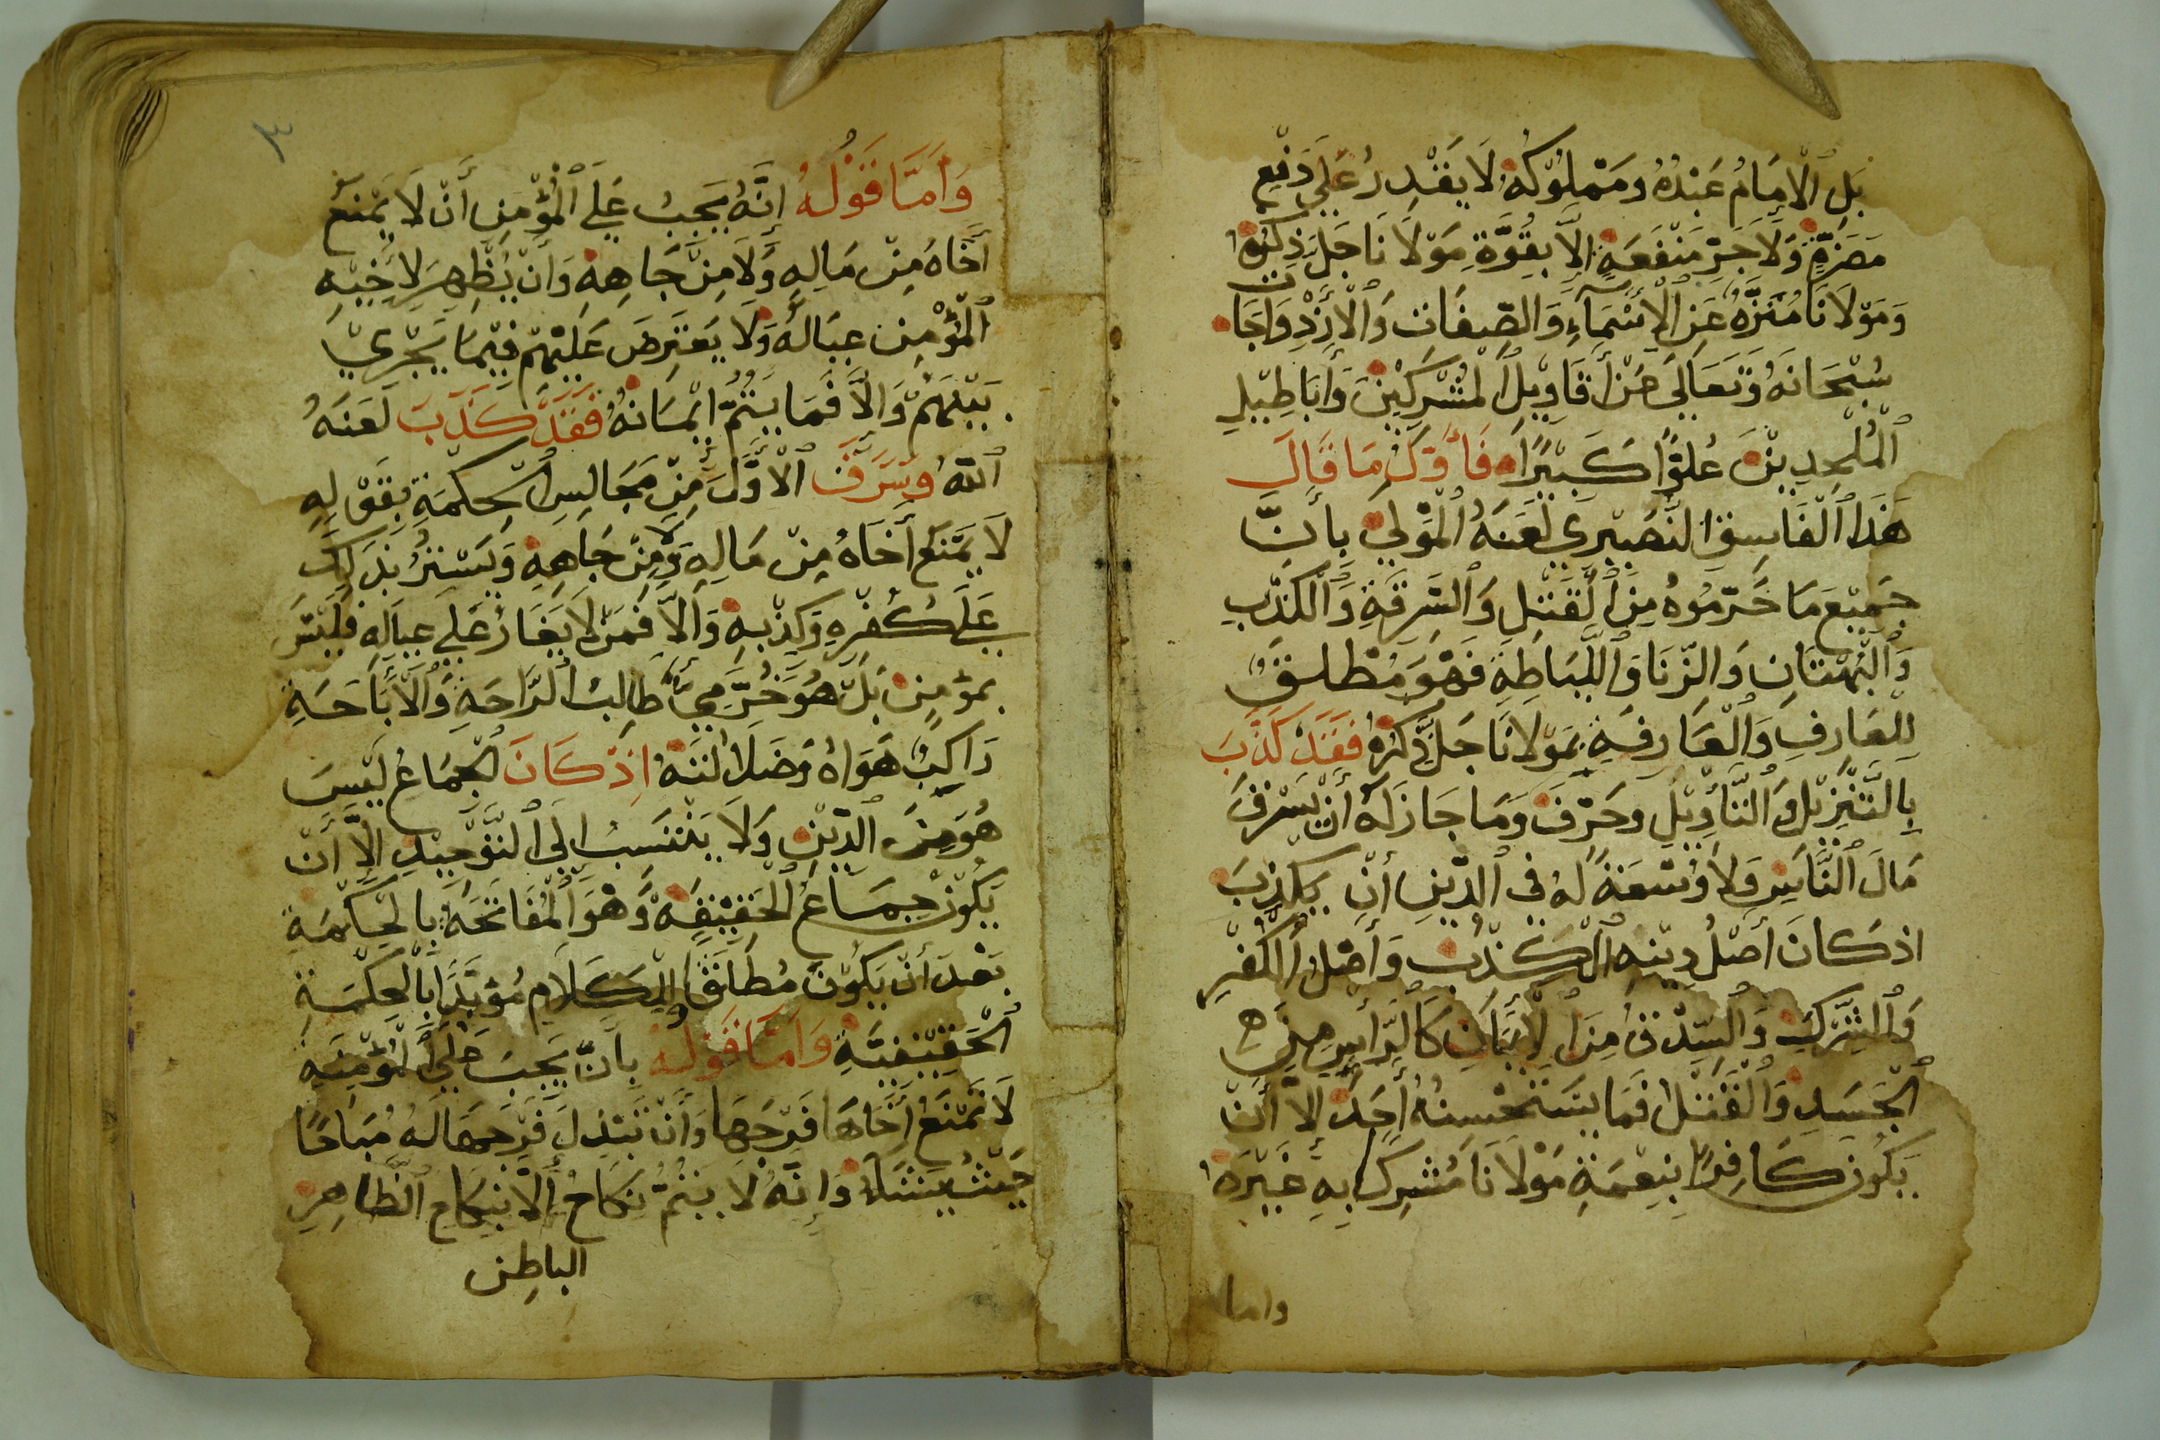 بَلِ ٱلْإِمَامُ عَبْدُهُ وَمَمْلُوكُهُ لَا يَقْدِرُ عَلَى دَفْعِ
مَضَرَّةٍ وَلَا جَرِّ مَنْفَعَةٍ إِلَّا بِقُوَّةِ مَوْلَانَا جَلَّ ذِكْرُهُ
وَمَوْلَانَا مُنَزَّهٌ عَنِ ٱلْأَسْمَآءِ وَالصِّفَاتِ وَٱلْأَزْدِوَاجَات
سُبْحَانَهُ وَتَعَالَى عَنْ أَقَاوِيلِ ٱلْمُشْرِكِيْنَ وَأَبَاطِيْلِ
ٱلْمُلْحِدِيْنَ عُلُوًّا كَبِيْرًا فَأَوَّلُ مَا قَالَ
هَذَا ٱلْفَاسِقُ النُّصَيْرِي لَعَنَهُ ٱلْمَوْلَى بِأَنَّ
جَمِيْعَ مَا حَرَّمُوهُ مِنَ ٱلْقَتْلِ وَٱلسَّرِقَةِ وَٱلْكَذْبِ
وَٱلْبُهْتَانِ وَالزِّنَا وَٱللِّيَاطَةِ فَهُوَ مُطْلَقٌ
لِلْعَارِفِ وَٱلْعَارِفَةِ بِمَوْلَانَا جَلَّ ذِكْرُهُ فَقَدْ كَذَبَ
بِالتَّنْزِيْلِ وَٱلتَّأْوِيْلِ وَحَرَّفَ وَمَا جَازَ لَهُ أَنْ يَسْرِقَ
مَالَ ٱلنَّاسِ وَلَا وُسْعَةً لَهُ فِي ٱلدِّيْنِ أَنْ يَكْذِبَ
اذ كَانَ أَصْلُ دِينِهِ ٱلْكَذْبُ وَأَصْلُ ٱلْكُفْرِ
وَٱلشِّرْكِ وَٱلصِّدْقُ مِنَ ٱلْإِيْمَانِ كَالرَّأْسِ مِنَ
ٱلْجَسَدِ وَٱلْقَتْلُ فَمَا يَسْتَحْسِنُهُ أَحَدٌ إِلَّا أَنْ
يَكُونَ كَافِرًا بِنِعْمَةِ مَوْلَانَا مُشْرِك بِهِ غَيْرَهُ
واما
٣
وَأَمَّا قَوْلُهُ إِنَّهُ يَجِبُ عَلَى ٱلْمُؤْمِنِ أَنْ لَا يَمْنَعَ
أَخَاهُ مِنْ مَالِهِ وَلَا مِنْ جَاهِهِ وَأَنْ يُظْهِرَ لِأَخِيْهِ
ٱلْمُؤْمِنِ عِيَالَهُ وَلَا يَعْتَرِضَ عَلَيْهِمْ فِيْمَا يَجْرِيْ
بَيْنَهُمْ وَالَّا فَمَا يَتِمُّ اِيْمَانُهُ فَقَدْ كَذَبَ لَعَنَهُ
ٱللّٰهُ وَسَرَقَ ٱلْأَوَّلَ مِنْ مَجَالِسِ ٱلْحِكْمَةِ بِقَوْلِهِ
لَا يَمْنَعُ أَخَاهُ مِنْ مَالِهِ وَلَا مِنْ جَاهِهِ وَيَسْتُرُ بِذَلِكَ
عَلَى كُفْرِهِ وَكِذْبِهِ وَالَّا فَمَنْ لَا يَغَارُ عَلَى عِيَالِهِ فَلَيْسَ
بمؤمِنٍ بَلْ هُوَ خُرَّمِيٌّ طَالِبُ ٱلرَّاحَةِ وَٱلْأَبَاحَةِ
رَاكِبٌ هَوَاهُ وَضَلَالَتَهُ اِذْ كَانَ ٱلْجِمَاعُ لَيْسَ
هُوَ مِنَ ٱلدِّيْنِ وَلَا يَنْتَسِبُ إِلَى ٱلتَّوْحِيْدِ إِلَّا أَنْ
يَكُوْنَ جِمَاعُ ٱلْحَقِيْقَةِ وَهُوَ ٱلْمُفَاتَحَةُ بِالْحِكْمَةِ
بَعْدَ أَنْ يَكُوْنَ مُطْلَقٌ لِلْكَلَامِ مُؤَيَّدًا بِالْحِكْمَةِ
ٱلْحَقِيْقِيَّةِ وَامَّا قَوْلُهُ بِانَّ يَجِبُ عَلَى ٱلْمُؤْمِنَةِ
لَا تَمْنَعُ أَخَاهَا فَرْجَهَا وَأَنْ تَبْذُلَ فَرْجَهَا لَهُ مُبَاحًا
حَيْثُ يَشَآءُ وَإِنَّهُ لَا يَتِمُّ نِكَاحُ ٱلَّا بِنِكَاحِ ٱلظَّاهِرِ
الباطِن